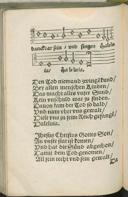 danckbar sein / und singen Halelu
ia / Haleluia.
Den Tod niemand zwingen kund /
Bey allen menschen kinden /
Das macht alles unser Sund /
Kein unschuld war zu finden.
Davon kam der Tod so bald /
Und nam uber uns gewalt /
Hielt uns jnn seim Reich gefangen /
Haleluia.
Jhesus Christus Gottes Son /
An unser stat ist komen /
Und hat die Sünd abgethon /
Damit dem Tod genomen /
All sein recht und sein gewalt /
Da